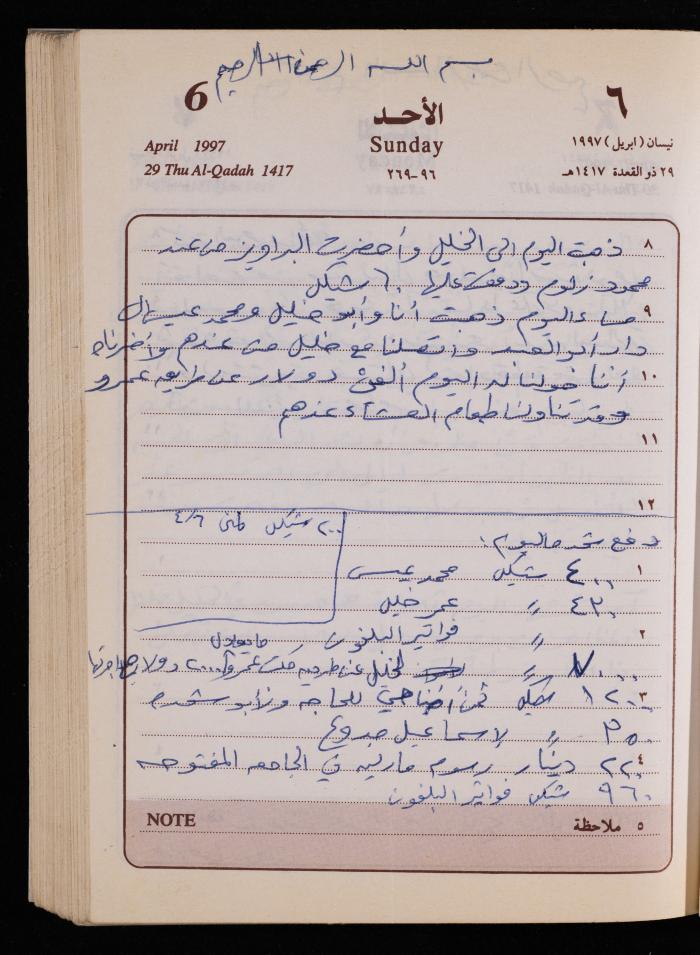 بسم الله الرحمن الرحيم
6
٦
الأحد
April 1997
Sunday
نيسان (ابريل) ١٩٩٧
29 Thu Al-Qadah 1417
٩٦-٢٦٩
٢٩ ذو القعدة ١٤١٧هـ
٨ ذهبت اليوم الى الخليل وأحضرت البراويز من عند
محمود زلوم ودفعت عليها ٦٠ شيكل
٩ مساء اليوم ذهبت أنا وأبو خليل ومحمد عيسى الى
دار أبو العبد واتصلنا مع خليل من عندهم وأخبرناه
١٠ أننا حولنا له اليوم ألفي دولار عن طريق عمرو
وقد تناولنا طعام العشاء عندهم
١١
١٢
٢٠٠ شيكل ٤/٦
دفع شحده اليوم:
١ ٤٠٠٠ شيكل محمد عيسى
٤٣٠ " عمر خليل
٢ " فواتير البلفون
ما يعادل
٧٠٠٠ " للخليل عن طريق عمرو ٢٠٠٠ دولار
٣ ١٢٠٠ شيكل ثمن أضاحي للحاجه وأبو شحده
٣٥٠ " لإسماعيل
٤ ٢٢٠ دينار رسوم ماريه في الجامعه المفتوحه
٩٦٠ شيكل فواتير البلفون
NOTE
٥ ملاحظة